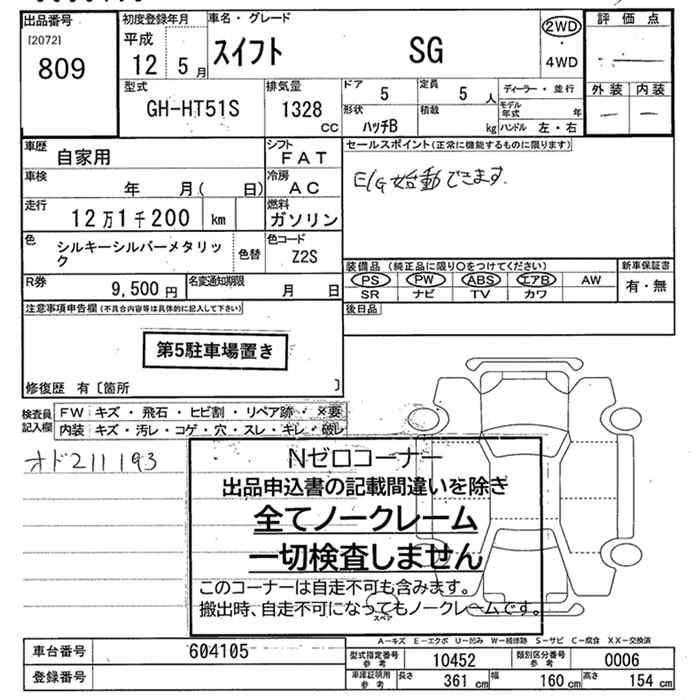 出品番号 初度登録年月 車名・グレード 2WD 評価点
[2072] 平成 スイフト SG ・
809 12 5月 4WD
型式 排気量 ドア 定員 ディーラー・並行 外装 内装
GH-HT51S 1328 cc 5 5人 モデル年式 年 — —
形状 積載
ハッチB kg ハンドル 左・右
車歴 シフト セールスポイント(正常に機能するものに限ります)
自家用 FAT
車検 冷房 E/G始動できます.
年 月( 日) AC
走行 燃料
12万1千200 km ガソリン
色 色コード
シルキーシルバーメタリック 色替 Z2S
装備品(純正品に限り○をつけてください) 新車保証書
R券 名変通知期限 PS PW ABS エアB AW 有・無
9,500円 月 日 SR ナビ TV カワ
注意事項申告欄(不具合内容等は具体的に記入して下さい) 後日品
第5駐車場置き
修復歴 有〔箇所 〕
検査員記入欄 FW キズ・飛石・ヒビ割・リペア跡・×要
内装 キズ・汚レ・コゲ・穴・スレ・キレ・破レ
オド211193
Nゼロコーナー
出品申込書の記載間違いを除き
全てノークレーム
一切検査しません
このコーナーは自走不可も含みます。
搬出時、自走不可になってもノークレームです。
スペア
A—キズ E—エクボ U—凹み W—補修跡 S—サビ C—腐食 XX—交換済
車台番号 604105 型式指定番号 参考 10452 類別区分番号 参考 0006
登録番号 車庫証明用 参考 長さ 361 cm 幅 160 cm 高さ 154 cm